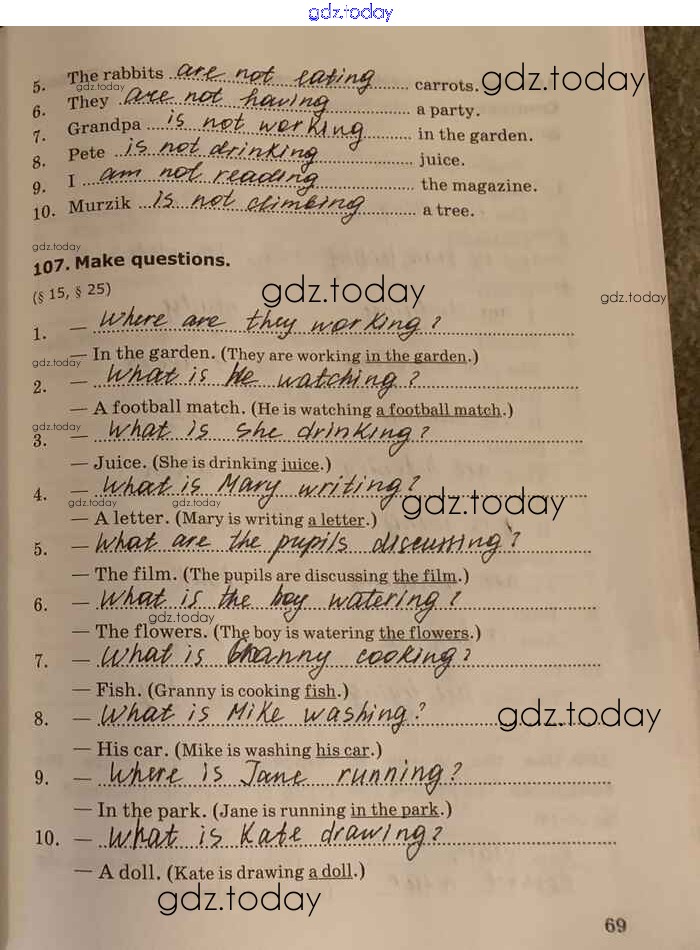 gdz.today
5. The rabbits are not eating carrots. gdz.today
gdz.today
6. They are not having a party.
7. Grandpa is not working in the garden.
8. Pete is not drinking juice.
9. I am not reading the magazine.
10. Murzik is not climbing a tree.
gdz.today
107. Make questions.
(§ 15, § 25) gdz.today gdz.today
1. — Where are they working?
— In the garden. (They are working in the garden.)
gdz.today
2. — What is he watching?
— A football match. (He is watching a football match.)
gdz.today
3. — What is she drinking?
— Juice. (She is drinking juice.)
4. — What is Mary writing?
gdz.today gdz.today gdz.today
— A letter. (Mary is writing a letter.)
5. — What are the pupils discussing?
— The film. (The pupils are discussing the film.)
6. — What is the boy watering?
gdz.today
— The flowers. (The boy is watering the flowers.)
7. — What is Granny cooking?
— Fish. (Granny is cooking fish.)
8. — What is Mike washing? gdz.today
— His car. (Mike is washing his car.)
9. — Where is Jane running?
— In the park. (Jane is running in the park.)
10. — What is Kate drawing?
— A doll. (Kate is drawing a doll.)
gdz.today
69